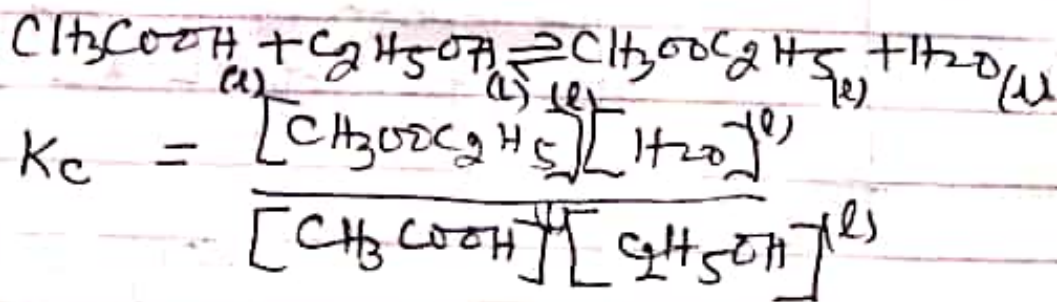 CH₃COOH(l) + C₂H₅OH(l) ⇌ CH₃OOC₂H₅(l) + H₂O(l)
Kc = [CH₃OOC₂H₅](l)[H₂O](l) / [CH₃COOH](l)[C₂H₅OH](l)